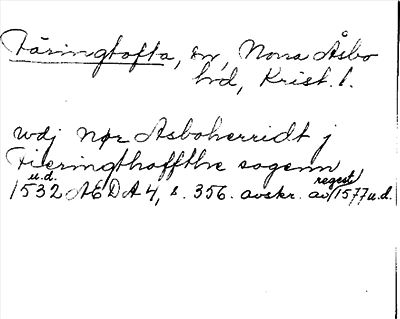 Färingtofta, sn, Norra Åsbo
hd, Krist. l.
wdj Nør Asboherridt j
Fieringthoffthe sogenn
u.d. regest
1532 ÆDA 4, s. 356. avskr. av 1577 u.d.